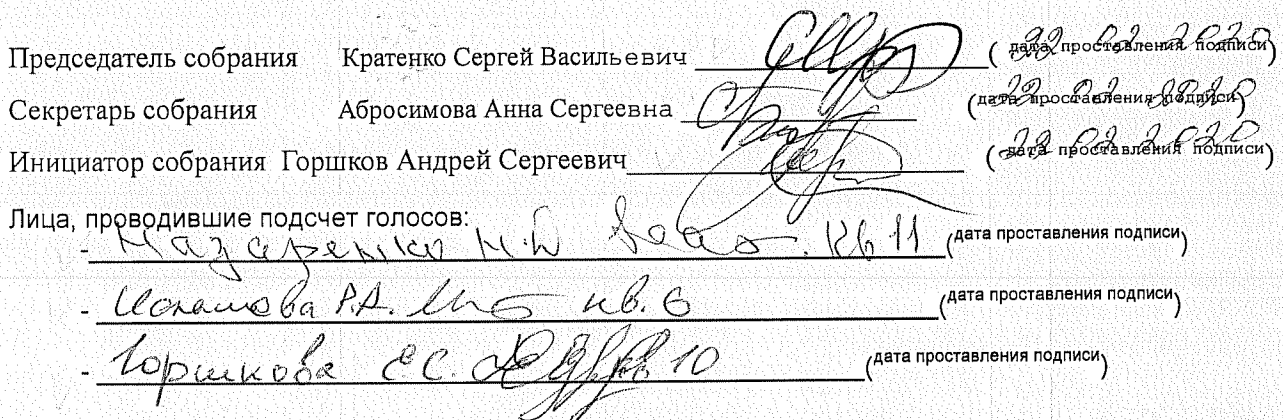 Председатель собрания Кратенко Сергей Васильевич (дата проставления подписи) 22 02 2020
Секретарь собрания Абросимова Анна Сергеевна (дата проставления подписи) 22 02 2020
Инициатор собрания Горшков Андрей Сергеевич (дата проставления подписи) 22 02 2020
Лица, проводившие подсчет голосов:
- Назаренко Н.И. кв 11 (дата проставления подписи)
- Исламова Р.А. кв. 6 (дата проставления подписи)
- Горшкова Е С. кв 10 (дата проставления подписи)